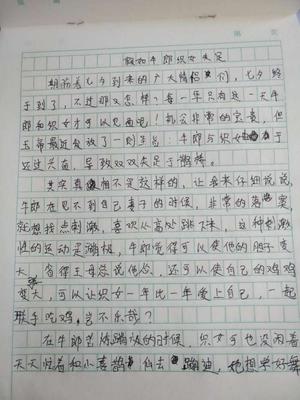 假如牛郎织女失足
期盼着七夕到来的广大情侣们，七夕终
于到了，不过那又怎样？每一年只有这一天牛
郎和织女才可以见面呢！机会非常的宝贵，但
玉帝最近发放了一则告：牛郎与织女由于
迈过头,导致双双失足于鹊桥。
其实真相不是这样的，让我来仔细说说，
牛郎在见不到自己妻子的时候，非常的寂寞，
就想找点刺激，喜欢从高处跳下来，这种刺激
性的运动是蹦极，牛郎觉得可以使他的胆子变
大，省得王母总说他怂，还可以使自己的鸡鸡
变大，可以让织女一年比一年爱上自己，一起
联手吃鸡，岂不乐哉？
在牛郎苦练蹦极的时候，织女可也没闲着
天天忙着和小喜鹊们去蹦迪，她想要好舞